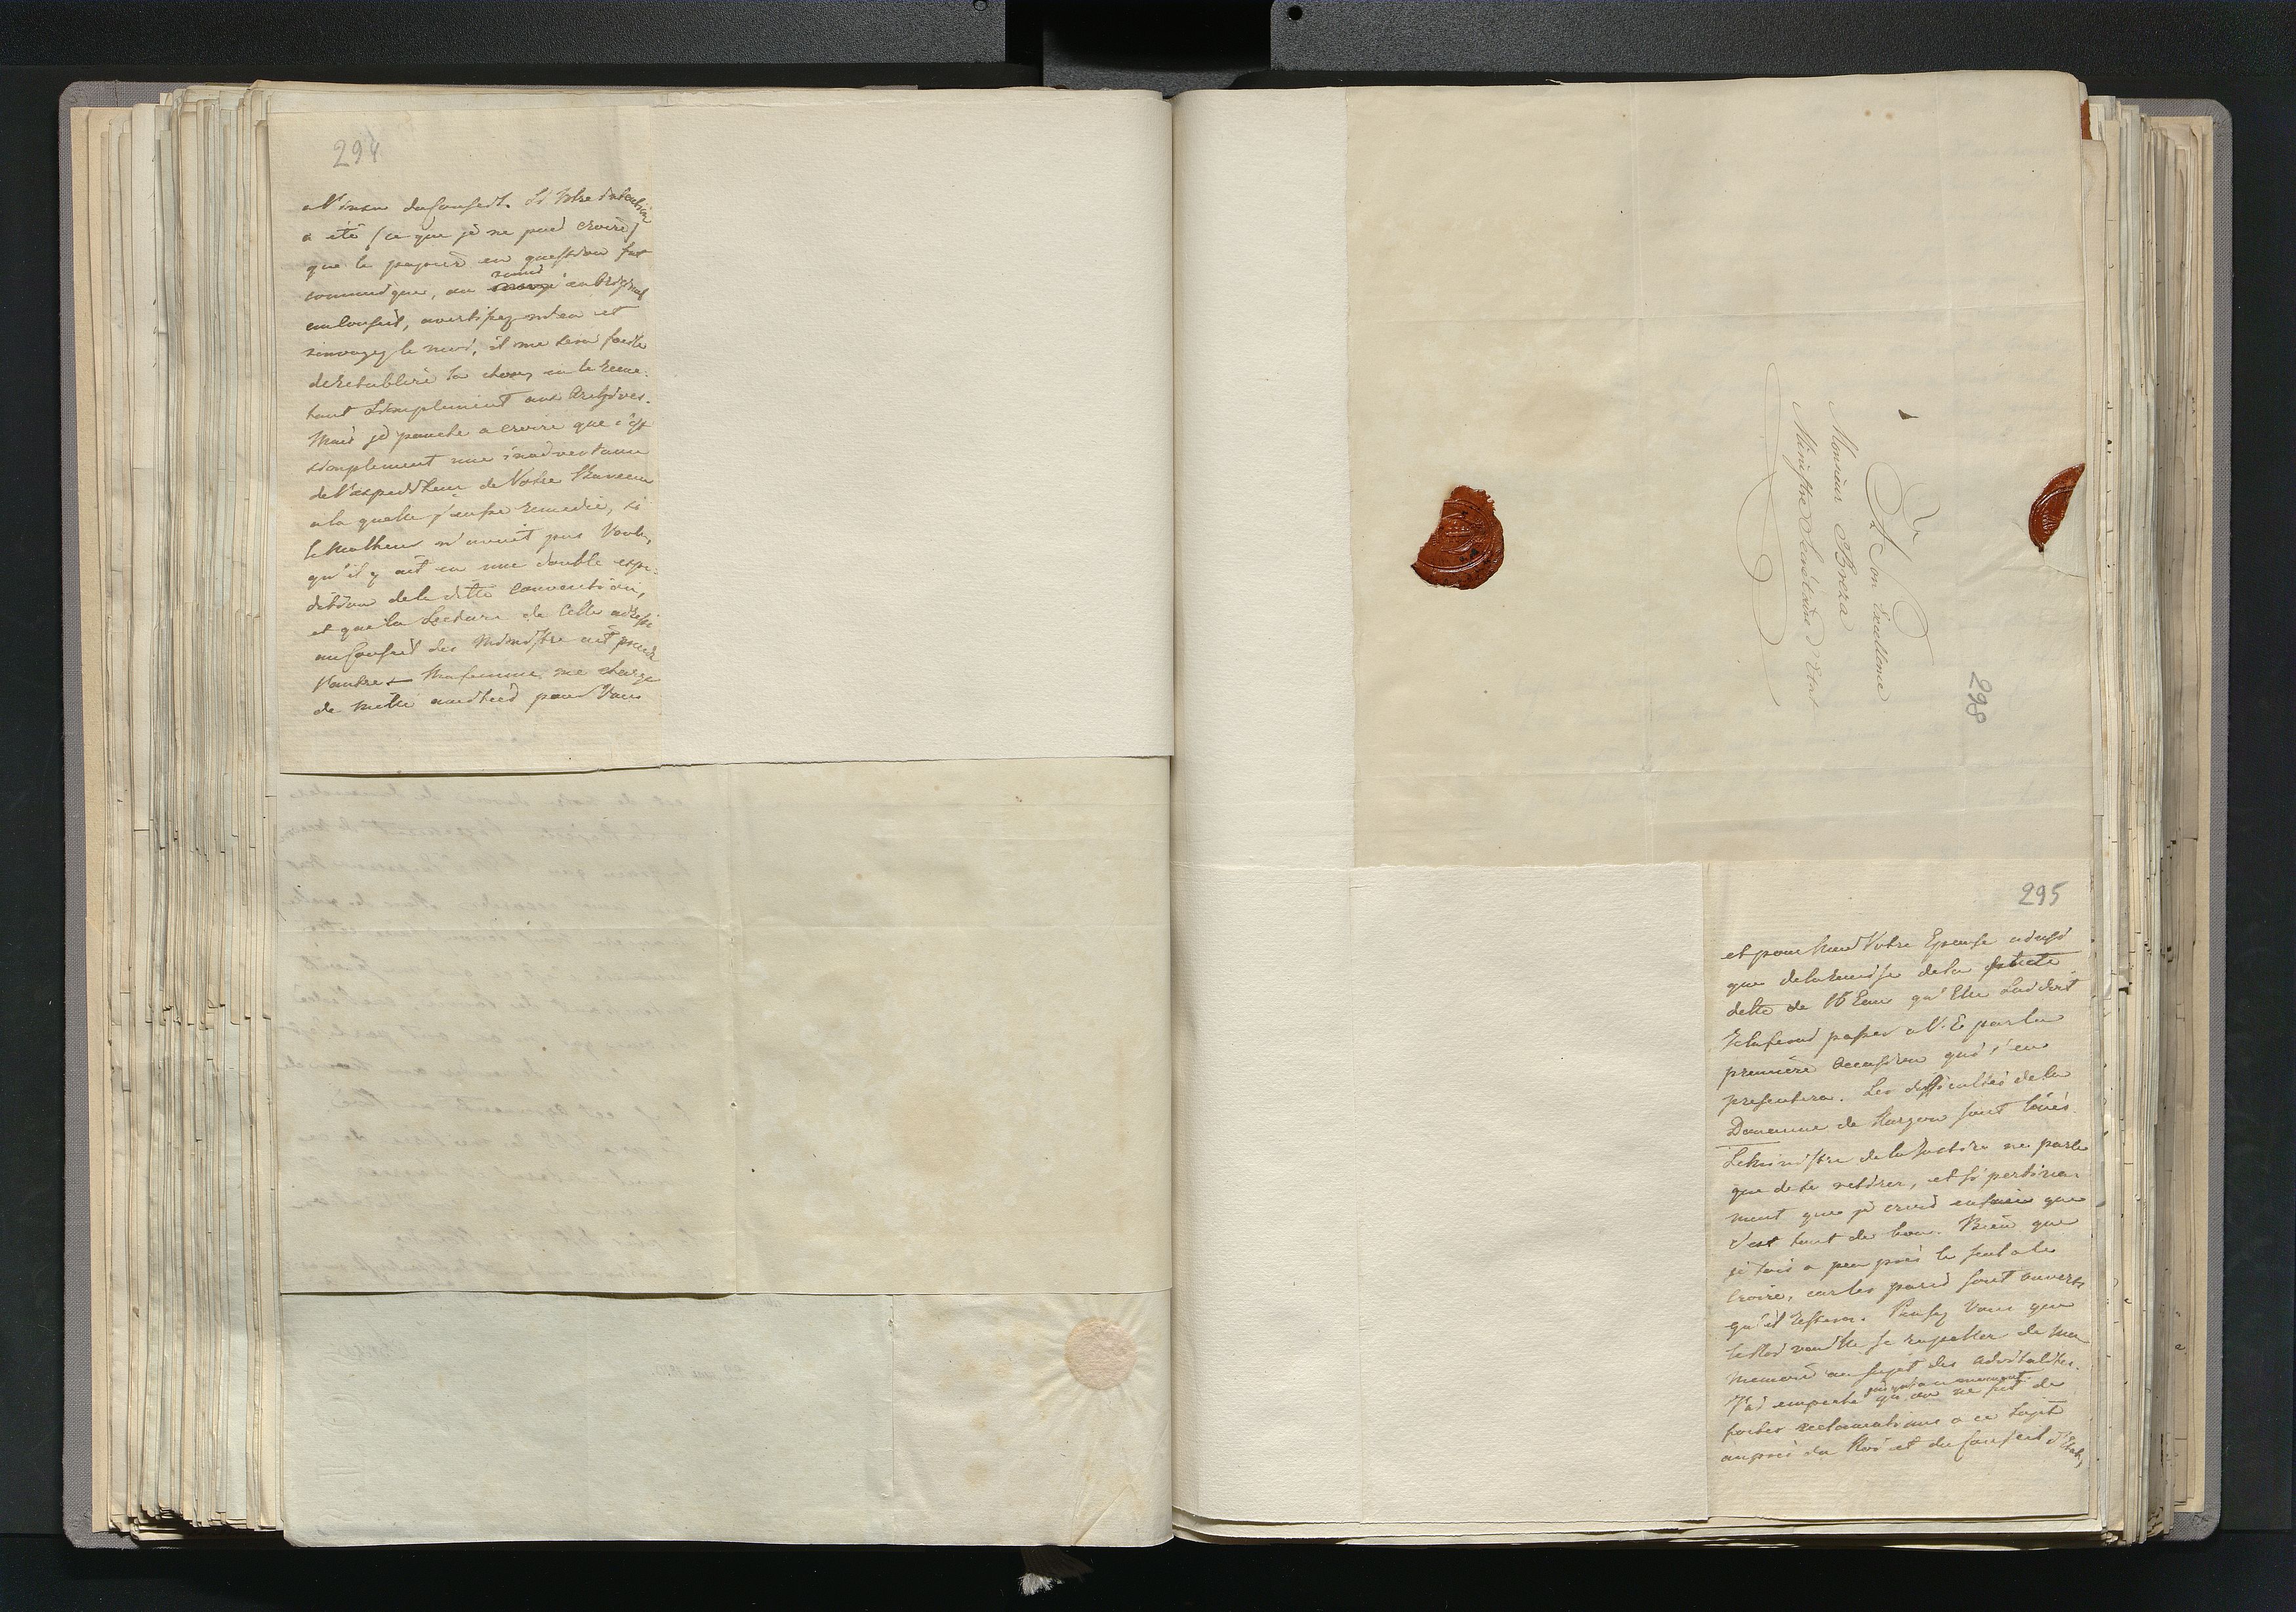 294
a l'insu du Conseil. Si Votre intention
a été (ce que je ne puis croire)
que le papier en question fut
communiqué, ou remis en Original
au Conseil, avertissez m'en et
renvoyez le moi, il me sera facile
de retablire la chose, en le remet-
tant simplement aux Archives.
Mais je panche a croire que c'est
simplement une inadvertance
de l'expediteur de Votre Bureau
a la quelle j'eusse remedié, si
le Malheur n'avait pas voulu,
qu'il y ait eu une double expe-
dition de la ditte Convention,
et que la Lecture de Celle adressé
au Conseil des Ministre ait precedé
l'autre — Ma femme me charge
de mille amitiés pour Vous
A Son Excellence
Monsieur Breza
Ministre Secrétaire d'Etat
298
295
et pour Mad Votre Epouse ainsi
que de la remise de la
dette de 16 Ecus qu'Elle Lui doit
Je la ferai passer a V. E par la
premiere occasion qui s'en
presentera. Les difficultés de la
Douanne de Kargow sont levés.
Le Ministre de la Justice ne parle
que de se retirer, et si pertina-
ment que je crois enfin que
c'est tout de bon. Bien que
je sois a peu près le seul a le
croire, car les paris sont ouverts
qu'il restera. Pensez Vous que
le Roi veuille se rapeller de ma
Memoire au sujet des
J'ai empeché qu'on ne fit de
fortes reclamations a ce sujet
auprès du Roi et du Conseil d'Etat,